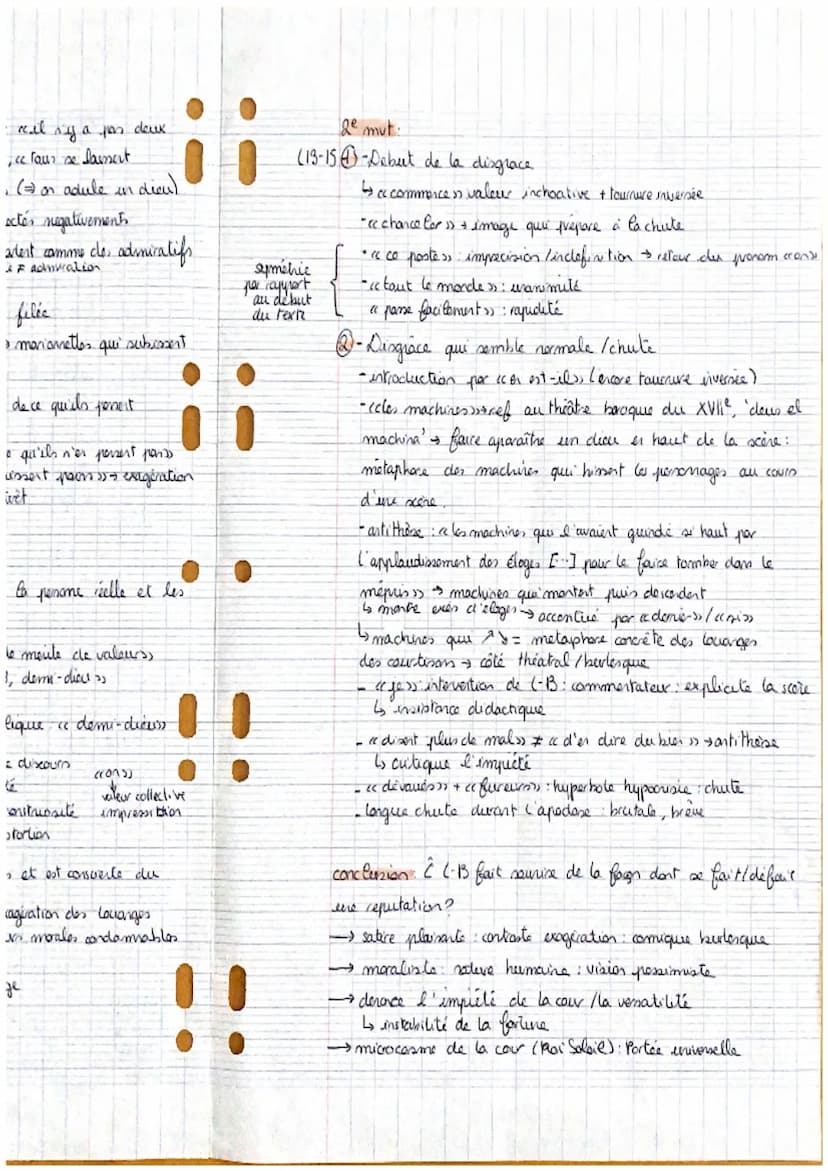 : «il n'y a pas deux
, « Tous se laissent
. (⇒ on adule un dieu)
actés négativements
arlent comme des admiratifs
≠ admiration
filée
marionnettes qui subissent
de ce qu'ils pensent
e qu'ils n'en pensent pas»
→ exagération
la personne réelle et les
le moule de valeurs»
, demi-dieu»
lique « demi-dieux»
discours
«on»
valeur collective
onstruosité impression
, et est converte du
xagération des louanges
morales condamnables
ge
2e mvt:
(13-15) ① - Début de la disgrâce
↳ « commence» valeur inchoative + tournure inversée
- «chanceler» → image qui prépare à la chute
symétrie
par rapport
au début
du texte
• « ce poste» : imprécision / indéfinition → retour du pronom «on»
- « tout le monde» : unanimité
« passe facilement» : rapidité
② - Disgrâce qui semble normale / chute
- introduction par « en est-il» (encore tournure inversée)
- «les machines» → ref au théâtre baroque du XVIIe, 'deus el
machina' → faire aparaître un dieu en haut de la scène :
métaphore des machines qui hissent les personnages au cours
d'une scène.
- antithèse : « les machines qui l'avaient guindé si haut par
l'applaudissement des éloges [...] pour le faire tomber dans le
mépris» → machines qui montent puis descendent
↳ montre excès d'éloges → accentué par « dernier» /
↳ machines qui ↗ ↘ = métaphore concrète des louanges
des courtisans → côté théatral / burlesque
- « je» intervention de L-B : commentateur : explicite la scène
↳ insistance didactique
- « disent plus de mal» ≠ « d'en dire du bien» → antithèse
↳ critique l'impiété
- « dévoués» + « fureurs» : hyperbole hypocrisie : chute
- longue chute durant l'apodose : brutale, brève
conclusion : L-B fait sourire de la façon dont se fait/défait
une réputation ?
→ satire plaisante : contraste exagération : comique burlesque
→ moraliste : nature humaine : vision pessimiste
→ dénonce l'impiété de la cour / la versatilité
↳ instabilité de la fortune
→ microcosme de la cour (Roi Soleil) : Portée universelle